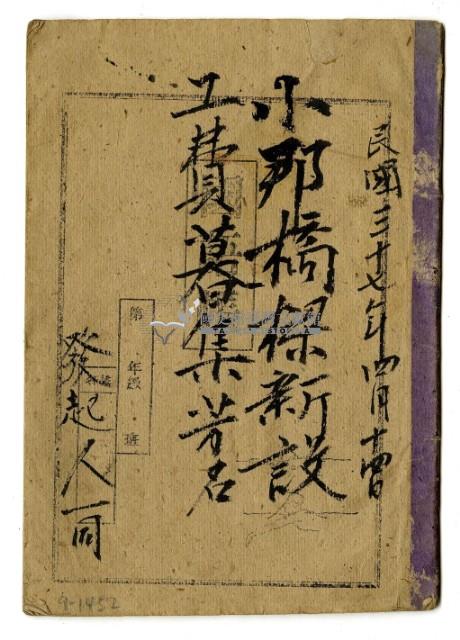 民國三十七年四月日
小那橋樑新設
工費募集芳名
第 年級 班
發起人一同
9-1452